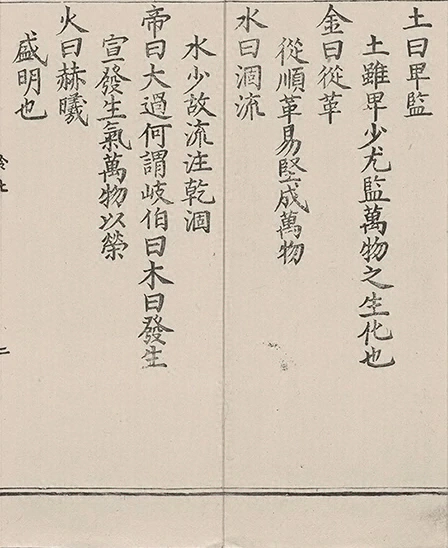 土曰卑監
土雖卑少尤監萬物之生化也
金曰從革
從順革易堅成萬物
水曰涸流
水少故流注乾涸
帝曰大過何謂岐伯曰木曰發生
宣發生氣萬物以榮
火曰赫曦
盛明也